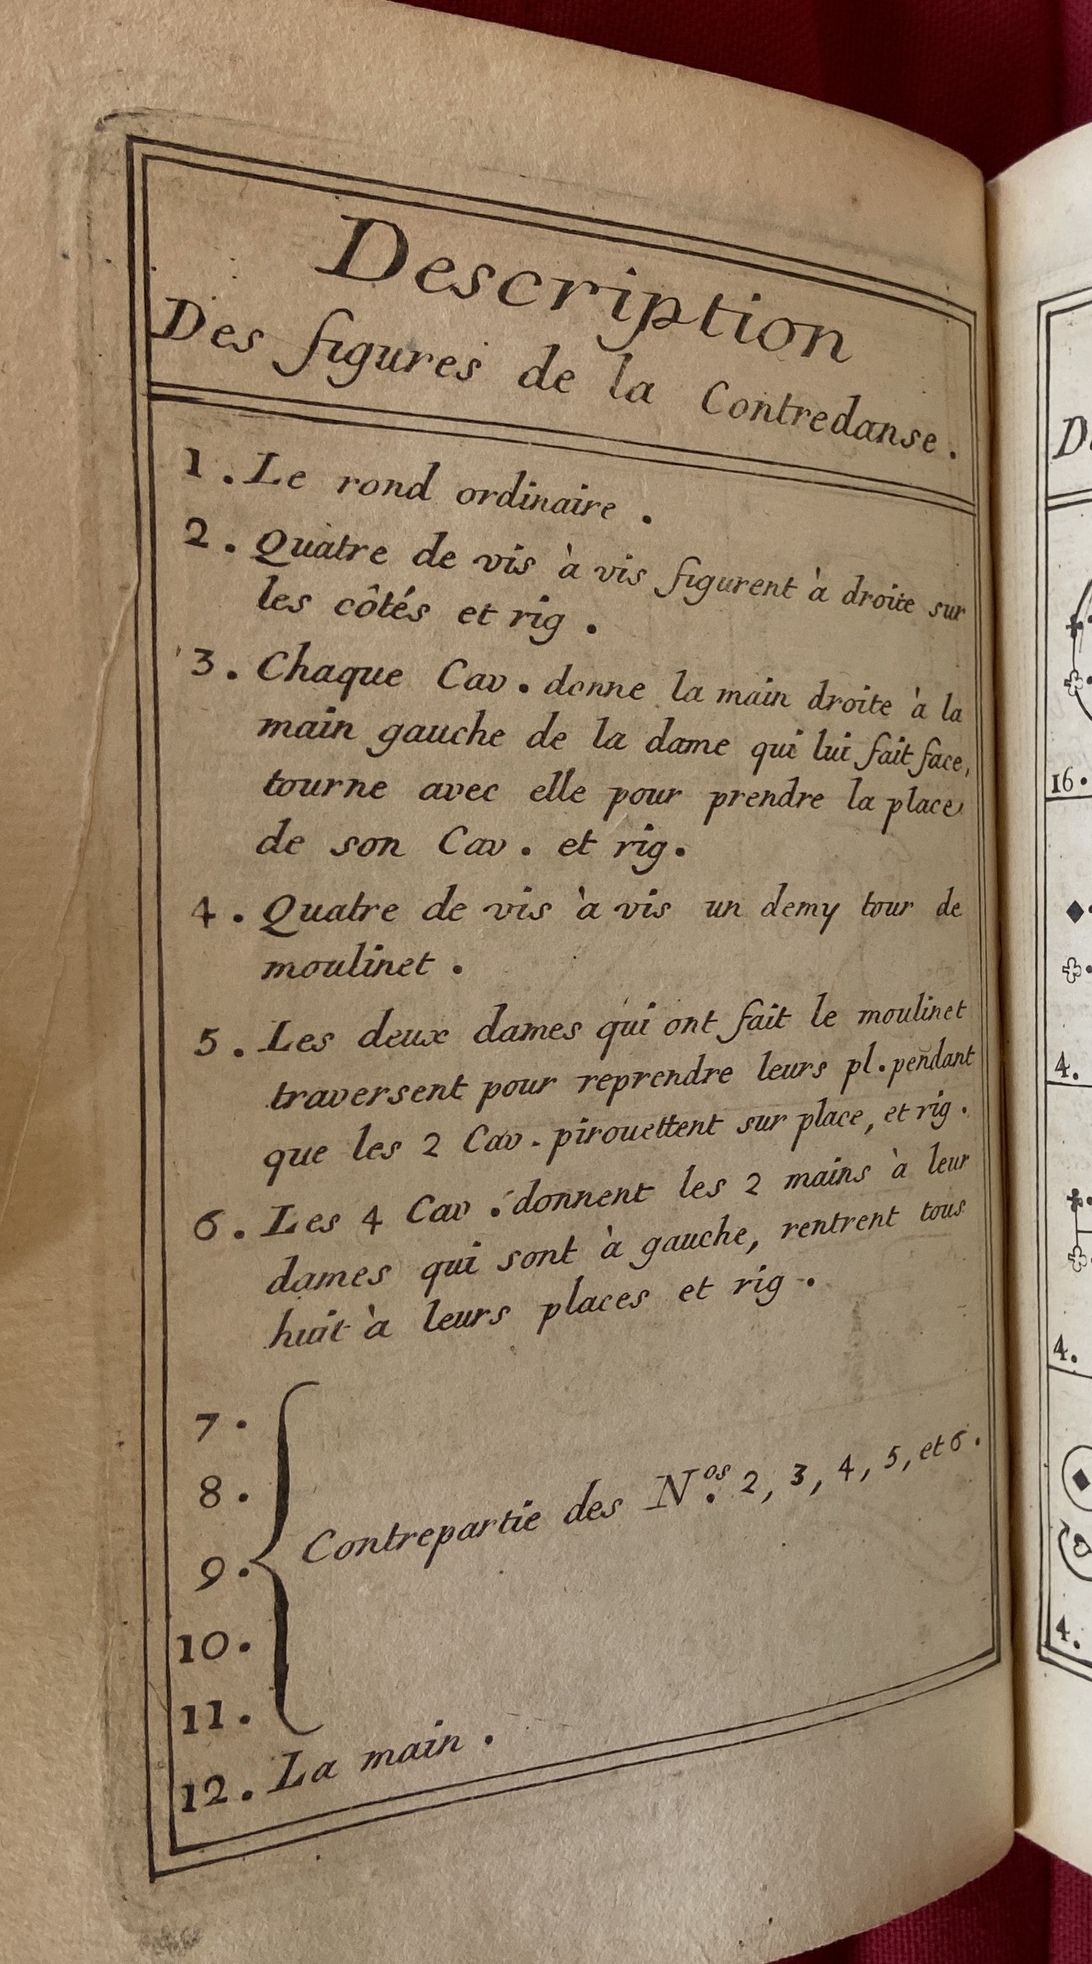 Description
Des figures de la Contredanse.
1. Le rond ordinaire.
2. Quatre de vis à vis figurent à droite sur
les côtés et rig.
3. Chaque Cav. donne la main droite à la
main gauche de la dame qui lui fait face,
tourne avec elle pour prendre la place
de son Cav. et rig.
4. Quatre de vis à vis un demy tour de
moulinet.
5. Les deux dames qui ont fait le moulinet
traversent pour reprendre leurs pl. pendant
que les 2 Cav. pirouettent sur place, et rig.
6. Les 4 Cav. donnent les 2 mains à leur
dames qui sont à gauche, rentrent tous
huit à leurs places et rig.
7.
8.
9.
10.
11.
Contrepartie des N.os 2, 3, 4, 5, et 6.
12. La main.
16.
4.
4.
4.